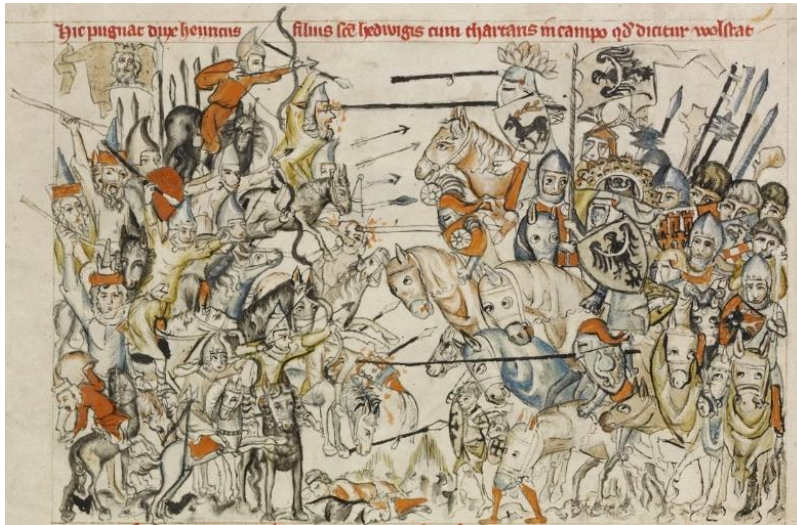 Hic pugnat dux heinricus filius sc̄e hedwigis cum thartaris in campo qd̄ dicitur wolstat